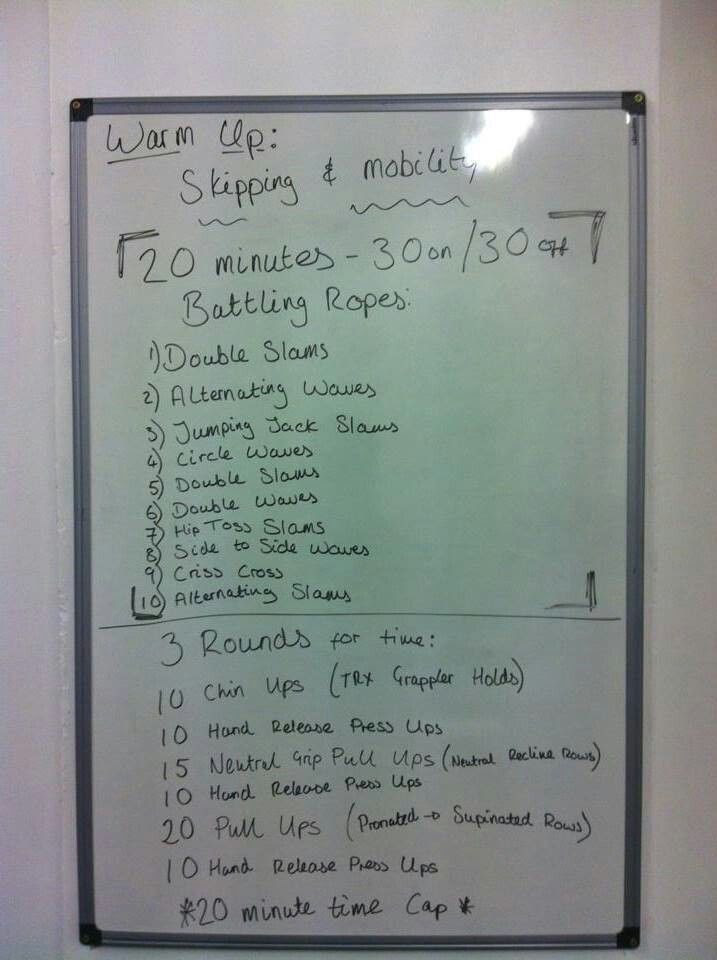 Warm Up:
Skipping & mobility
20 minutes - 30 on / 30 off
Battling Ropes:
1) Double Slams
2) Alternating Waves
3) Jumping Jack Slams
4) Circle Waves
5) Double Slams
6) Double Waves
7) Hip Toss Slams
8) Side to Side Waves
9) Criss Cross
10) Alternating Slams
3 Rounds for time:
10 Chin Ups (TRX Grappler Holds)
10 Hand Release Press Ups
15 Neutral Grip Pull Ups (Neutral Recline Rows)
10 Hand Release Press Ups
20 Pull Ups (Pronated → Supinated Rows)
10 Hand Release Press Ups
*20 minute time Cap *